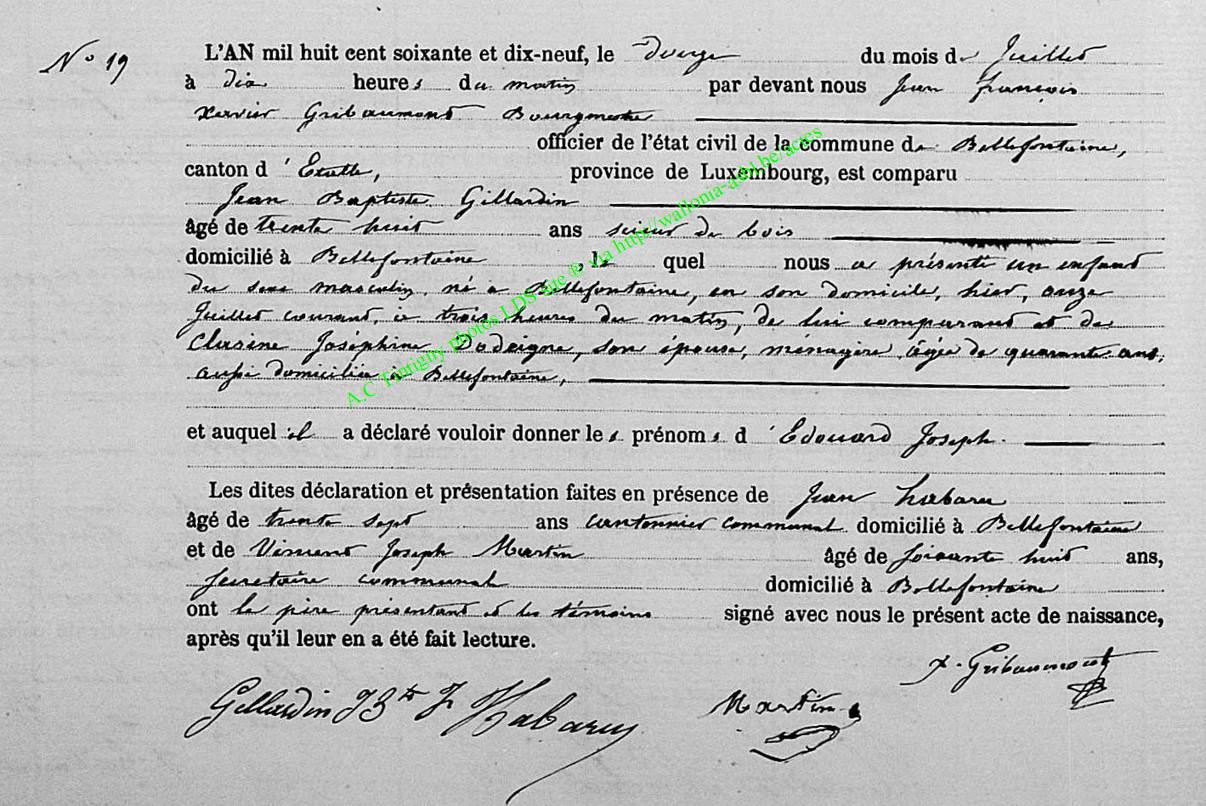 N° 19
L'AN mil huit cent soixante et dix-neuf, le douze du mois de Juillet
à dix heures du matin par devant nous Jean François
Xavier Gribaumont Bourgmestre
officier de l'état civil de la commune de Bellefontaine,
canton d'Etalle, province de Luxembourg, est comparu
Jean Baptiste Gillardin
âgé de trente huit ans scieur de bois
domicilié à Bellefontaine, le quel nous a présenté un enfant
du sexe masculin, né à Bellefontaine, en son domicile, hier, onze
Juillet courant, à trois heures du matin, de lui comparant et de
Joséphine Dodeigne, son épouse, ménagère, âgée de quarante ans,
aussi domiciliée à Bellefontaine,
et auquel il a déclaré vouloir donner les prénoms d'Edouard Joseph.
Les dites déclaration et présentation faites en présence de Jean Habaru
âgé de trente sept ans cantonnier communal domicilié à Bellefontaine
et de Vincent Joseph Martin âgé de soixante huit ans,
secrétaire communal domicilié à Bellefontaine
ont le père présentant et les témoins signé avec nous le présent acte de naissance,
après qu'il leur en a été fait lecture.
x. Gribaumont
Gillardin JBte J Habaru Martin
A.C Tintigny photos LDS site ® via http://wallonia-asbl.be/actes